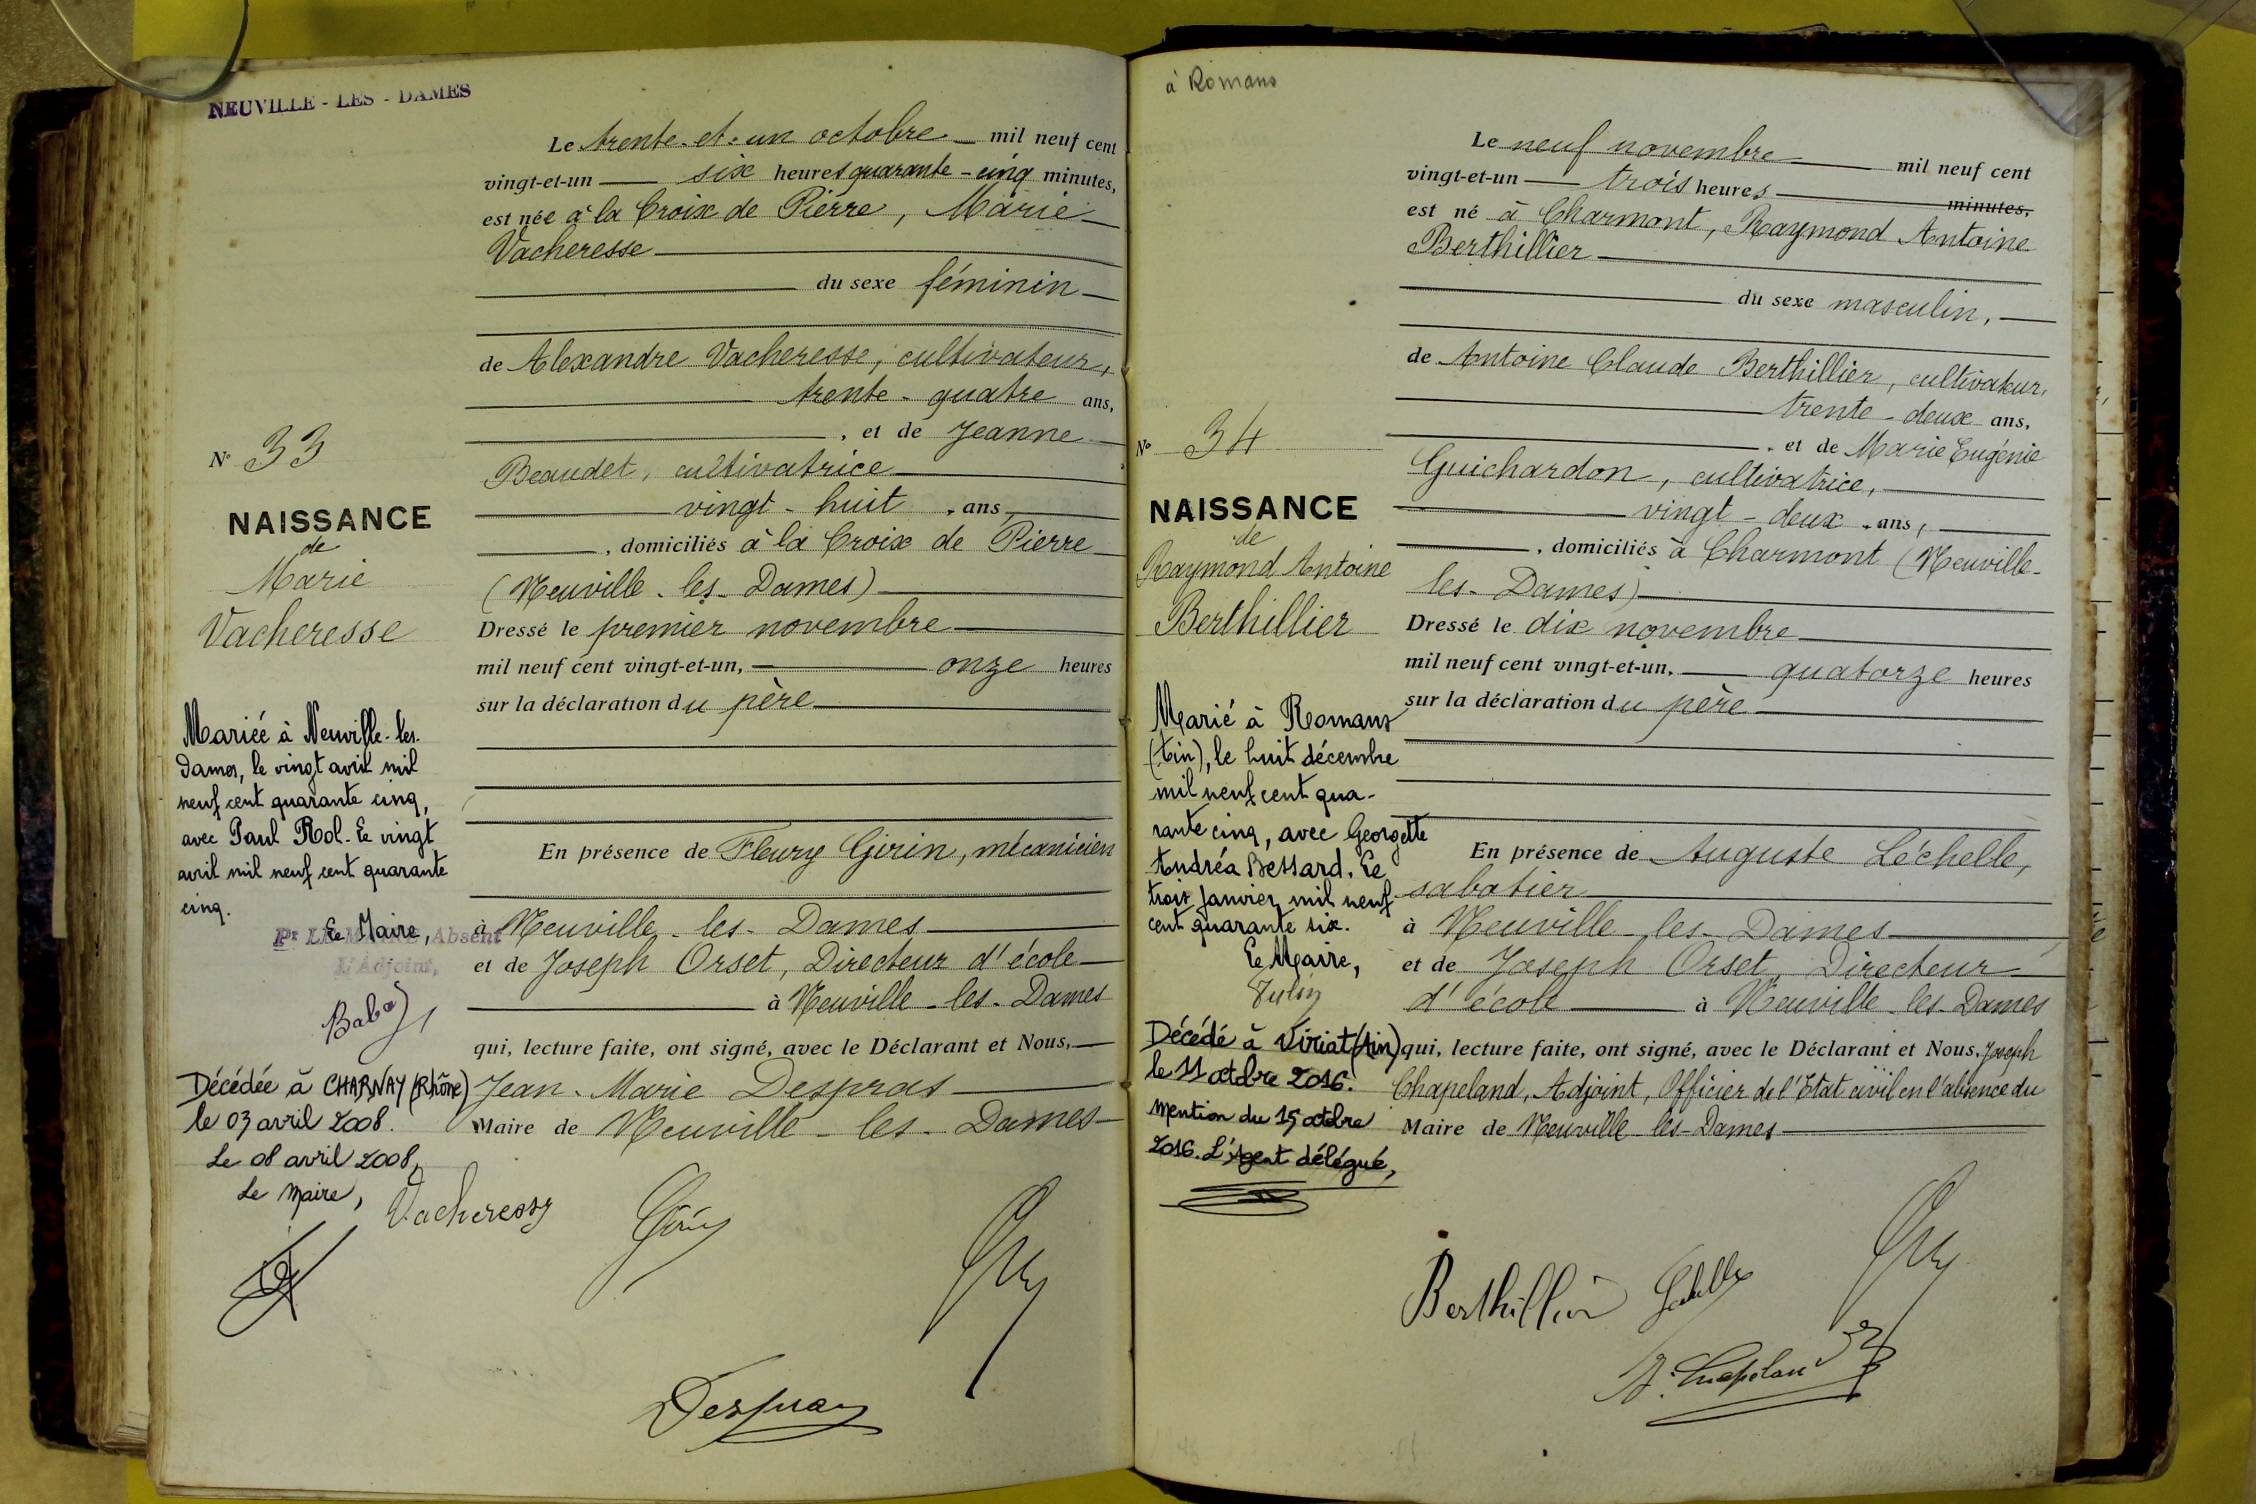 NEUVILLE - LES - DAMES
Le trente-et-un octobre mil neuf cent
vingt-et-un six heures quarante-cinq minutes,
est née à la Croix de Pierre, Marie
Vacheresse
du sexe féminin
de Alexandre Vacheresse, cultivateur,
trente-quatre ans,
, et de Jeanne
Beaudet, cultivatrice
vingt-huit, ans,
, domiciliés à la Croix de Pierre
(Neuville-les-Dames)
Dressé le premier novembre
mil neuf cent vingt-et-un, onze heures
sur la déclaration du père
En présence de Fleury Girin, mécanicien
à Neuville-les-Dames
et de Joseph Orset, Directeur d'école
à Neuville-les-Dames
qui, lecture faite, ont signé, avec le Déclarant et Nous,
Jean-Marie Despras
Maire de Neuville-les-Dames
N° 33
NAISSANCE
de
Marie
Vacheresse
Mariée à Neuville-les-
Dames, le vingt avril mil
neuf cent quarante cinq,
avec Paul Rol. Le vingt
avril mil neuf cent quarante
cinq.
Le Maire,
Pr LE MAIRE Absent
L'Adjoint,
Décédée à CHARNAY (Rhône)
le 03 avril 2008.
Le 08 avril 2008,
Le Maire,
Vacheresse
à Romans
Le neuf novembre mil neuf cent
vingt-et-un trois heures minutes,
est né à Charmont, Raymond Antoine
Berthillier
du sexe masculin,
de Antoine Claude Berthillier, cultivateur,
trente-deux ans,
, et de Marie Eugénie
Guichardon, cultivatrice,
vingt-deux, ans,
, domiciliés à Charmont (Neuville-
les-Dames)
Dressé le dix novembre
mil neuf cent vingt-et-un, quatorze heures
sur la déclaration du père
En présence de Auguste Léchelle,
sabotier
à Neuville-les-Dames
et de Joseph Orset, Directeur
d'école à Neuville-les-Dames
qui, lecture faite, ont signé, avec le Déclarant et Nous, Joseph
Chapeland, Adjoint, Officier de l'Etat civil en l'absence du
Maire de Neuville-les-Dames
N° 34
NAISSANCE
de
Raymond Antoine
Berthillier
Marié à Romans
(Ain), le huit décembre
mil neuf cent qua-
rante cinq, avec Georgette
Andréa Bessard. Le
trois janvier mil neuf
cent quarante six.
Le Maire,
Décédé à Viriat (Ain)
le 11 octobre 2016.
Mention du 15 octobre
2016. L'Agent délégué,
Berthillier